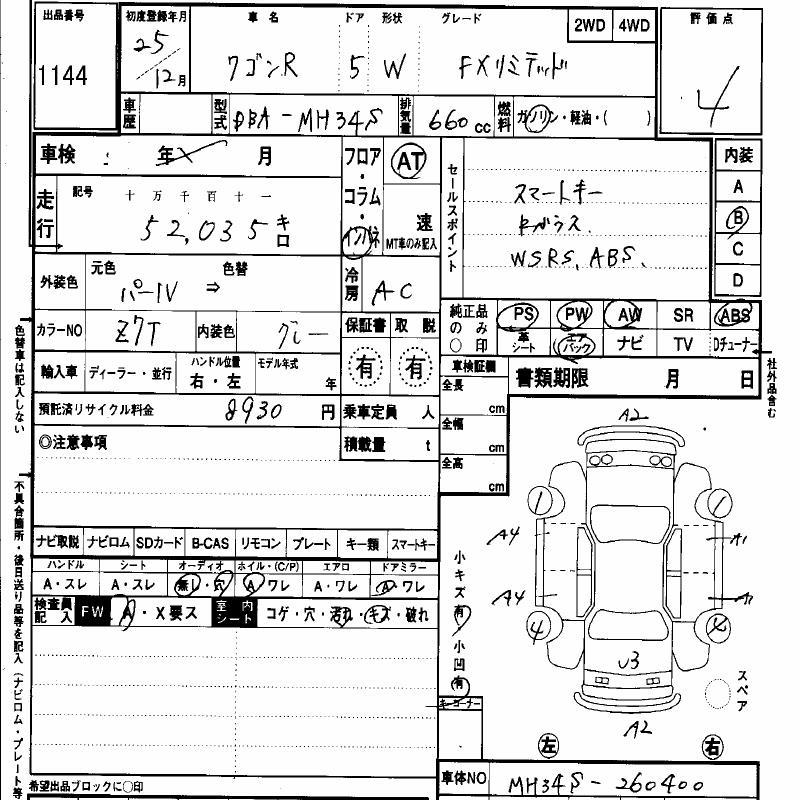 出品番号
1144
初度登録年月
25/12月
車名 ドア 形状 グレード
ワゴンR 5 W FXリミテッド
2WD 4WD
評価点
4
車歴
型式 DBA-MH34S
排気量 660cc
燃料 ガソリン・軽油・( )
車検 年 月
走行
記号 十万千百十一
52,035キロ
フロア・コラム・インパネ
AT
速
MT車のみ記入
セールスポイント
スマートキー
WSRS、ABS、
内装
A
B
C
D
外装色
元色 色替
パール ⇒
冷房 AC
カラーNO Z7T
内装色 グレー
保証書 取説
有 有
純正品のみ○印
PS PW AW SR ABS
革シート エアバック ナビ TV Dチューナー
輸入車 ディーラー・並行
ハンドル位置
右・左
モデル年式
年
車検証欄
全長 cm
全幅 cm
全高 cm
書類期限 月 日
預託済リサイクル料金 8930円
乗車定員 人
積載量 t
◎注意事項
色替車は記入しない
不具合箇所・後日送り品等を記入(ナビロム・プレート等
社外品含む
ナビ取説 ナビロム SDカード B-CAS リモコン プレート キー類 スマートキー
ハンドル シート オーディオ ホイル・(C/P) エアロ ドアミラー
A・スレ A・スレ 無し・穴 A・ワレ A・ワレ A・ワレ
検査員記入 FW A・X要ス
室内シート コゲ・穴・汚れ・キズ・破れ
小キズ有
小凹有
キーコーナー
A2
A4
A1
A4
A1
U3
A2
1
1
4
スペア
左 右
希望出品ブロックに○印
車体NO MH34S-260400